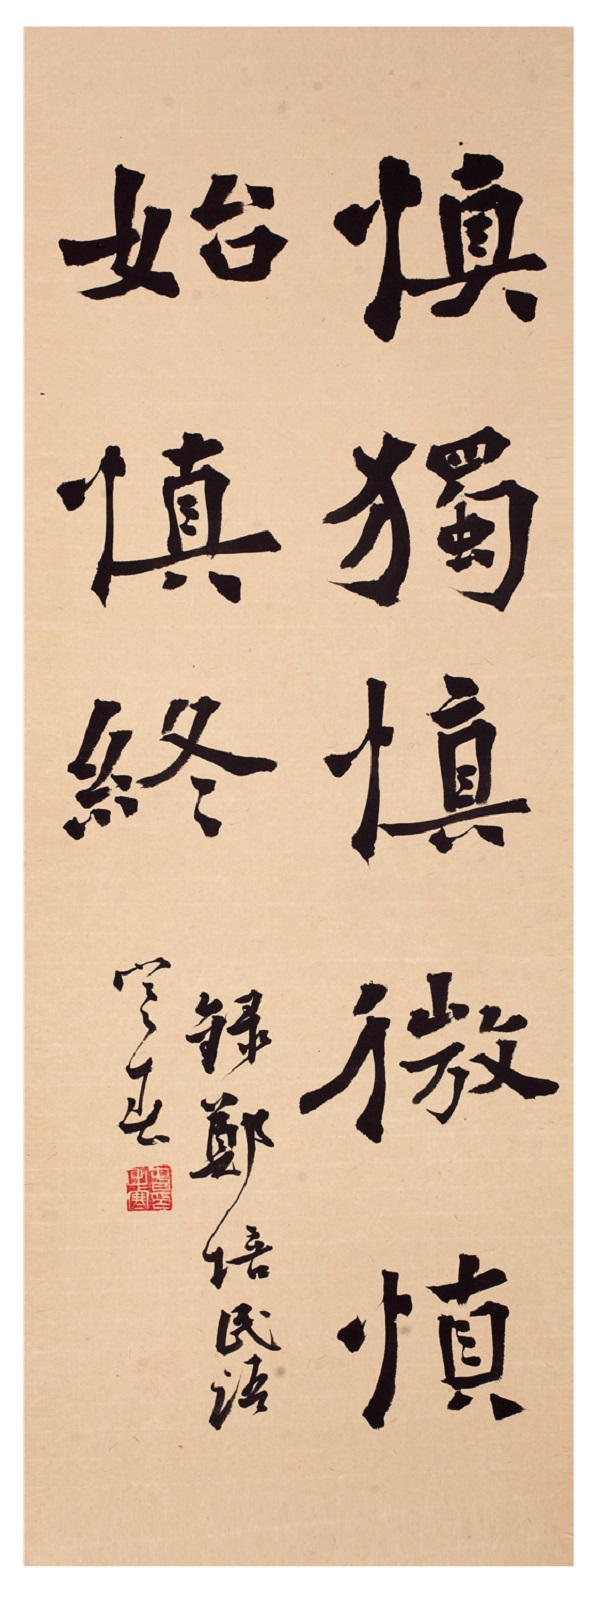 慎獨慎微慎
始慎終
録鄭培民語